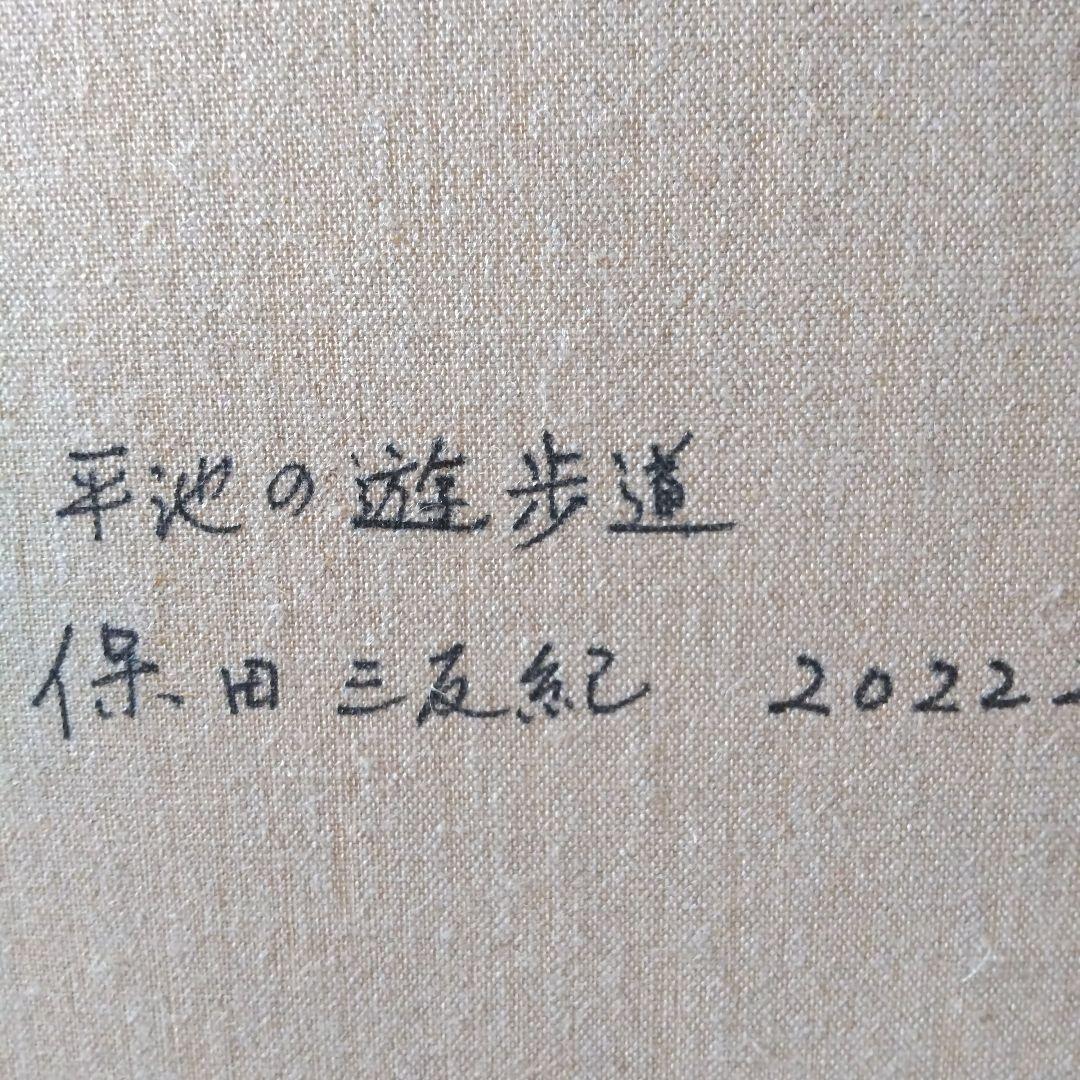 平池の遊歩道
保田三友紀 2022